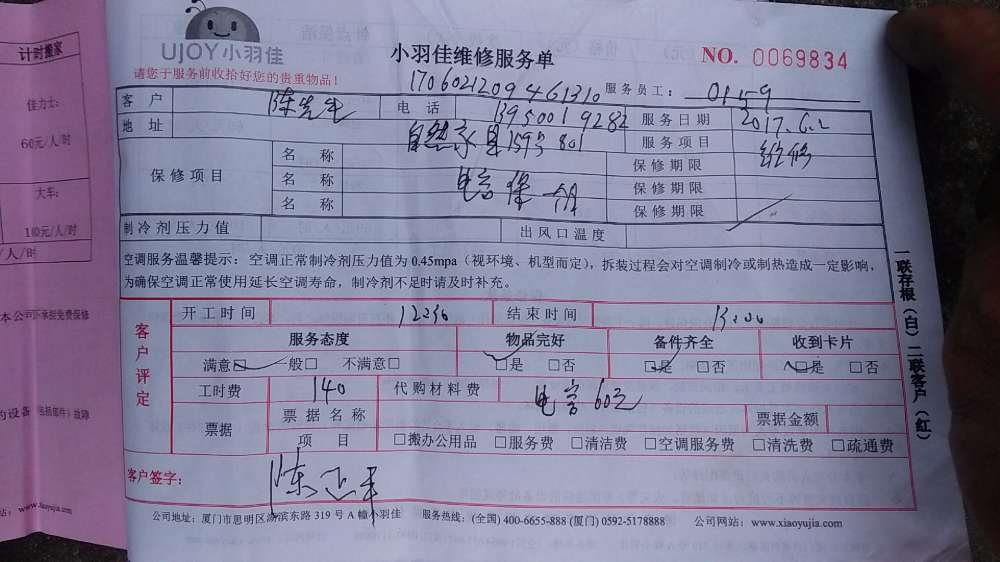 计时搬家
佳力士:
60元/人/时
大车:
100元/人/时
/人/时
本公司不承担免费保修
的设备(包括部件)故障
站: www.xiaoyujia.com
UJOY小羽佳
请您于服务前收拾好您的贵重物品!
小羽佳维修服务单
NO. 0069834
170602120946 1310
服务员工: 0159
客 户 陈先生 电 话 13950019282 服务日期 2017.6.2
地 址 自然家园159号801 服务项目 维修
保修项目
名 称 保修期限
名 称 电容保一月 保修期限
名 称 保修期限
制冷剂压力值 出风口温度
空调服务温馨提示: 空调正常制冷剂压力值为 0.45mpa (视环境、机型而定), 拆装过程会对空调制冷或制热造成一定影响,
为确保空调正常使用延长空调寿命, 制冷剂不足时请及时补充。
客户评定
开工时间 1236 结束时间 13:06
服务态度 物品完好 备件齐全 收到卡片
满意□ 一般□ 不满意□ □是 □否 □是 □否 □是 □否
工时费 140 代购材料费 电容60元
票据 票据名称 票据金额
项 目 □搬办公用品 □服务费 □清洁费 □空调服务费 □清洗费 □疏通费
客户签字:
一联存根(白)二联客户(红)
公司地址: 厦门市思明区湖滨东路 319 号 A 幢小羽佳 服务热线: (全国) 400-6655-888 (厦门) 0592-5178888 公司网站: www.xiaoyujia.com